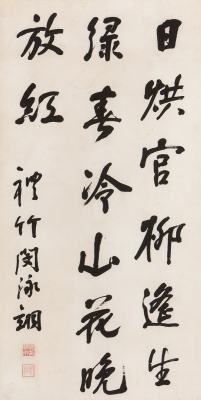 日烘官柳逢生
綠春冷山花晚
放紅
竹閔泳翊